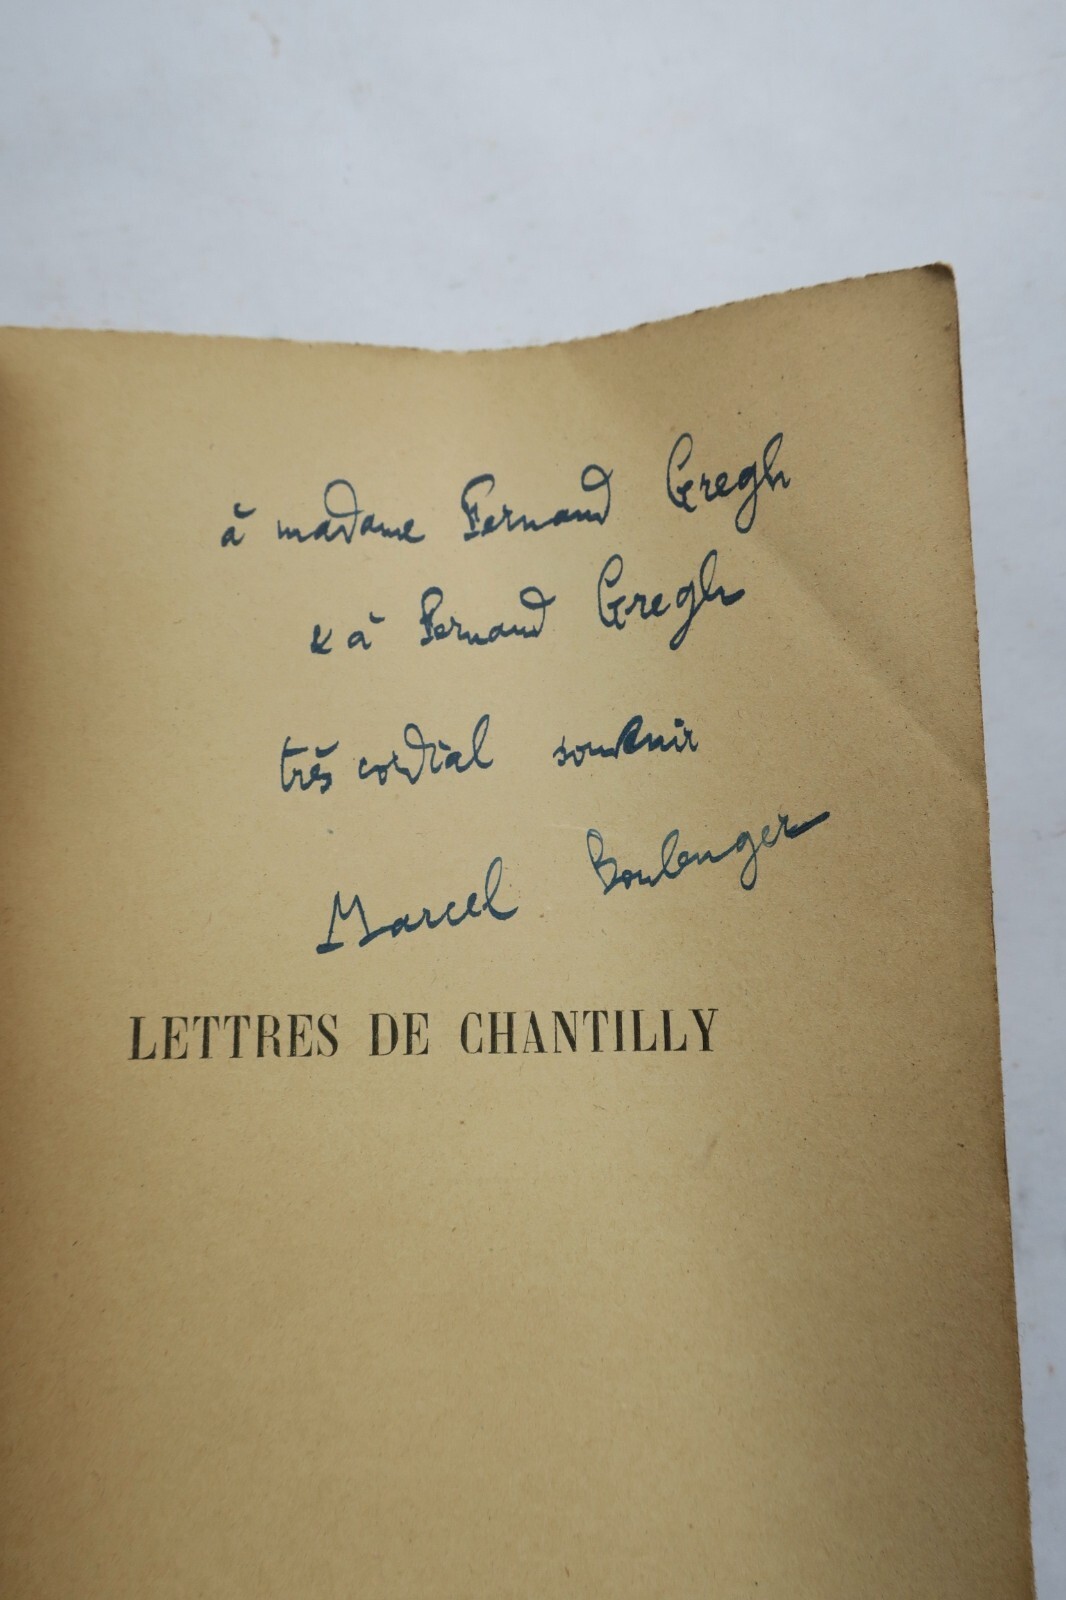 à madame Fernand Gregh
& à Fernand Gregh
très cordial souvenir
Marcel Boulenger
LETTRES DE CHANTILLY